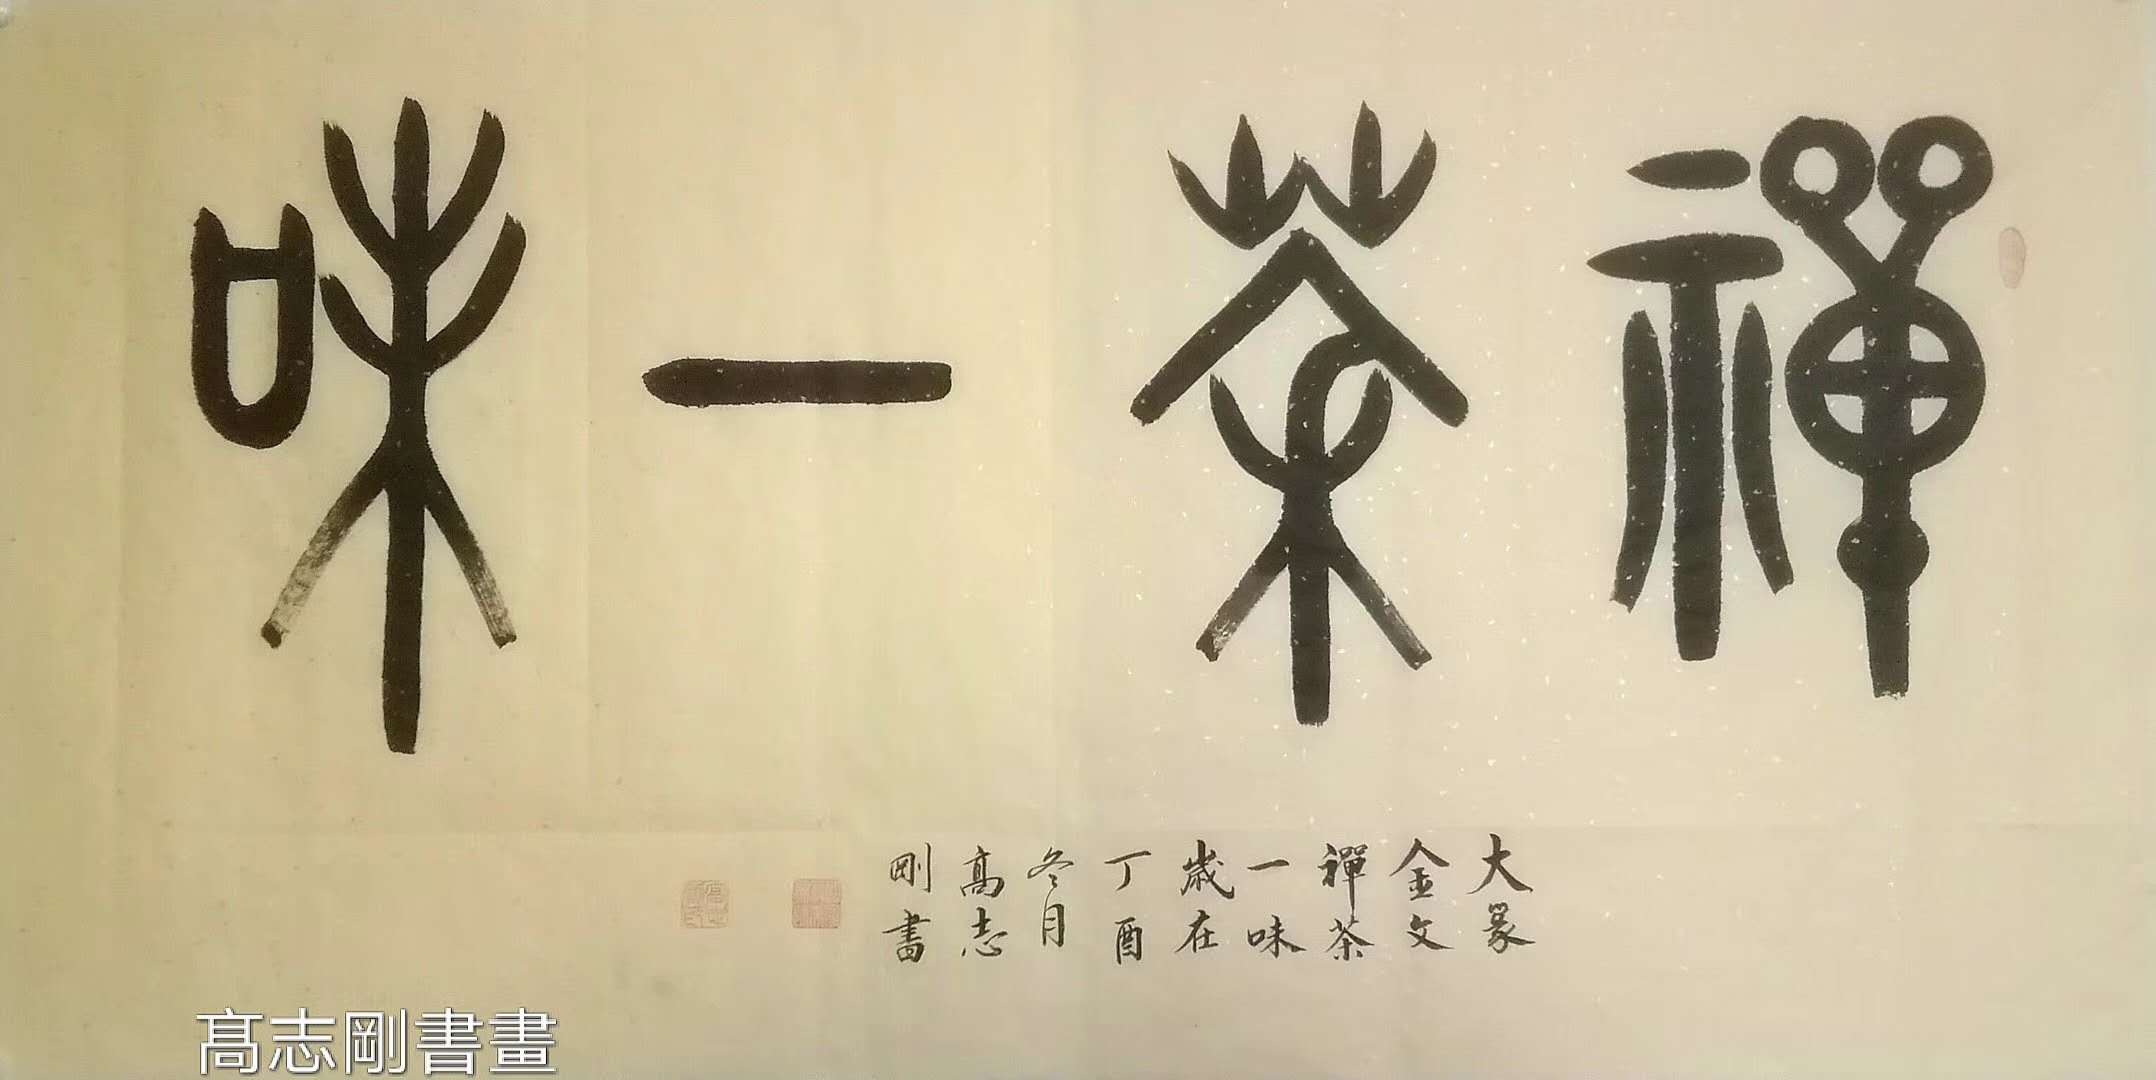 禪茶一味
大篆
金文
禪茶
一味
歲在
丁酉
冬月
高志
剛書
髙志剛書畫